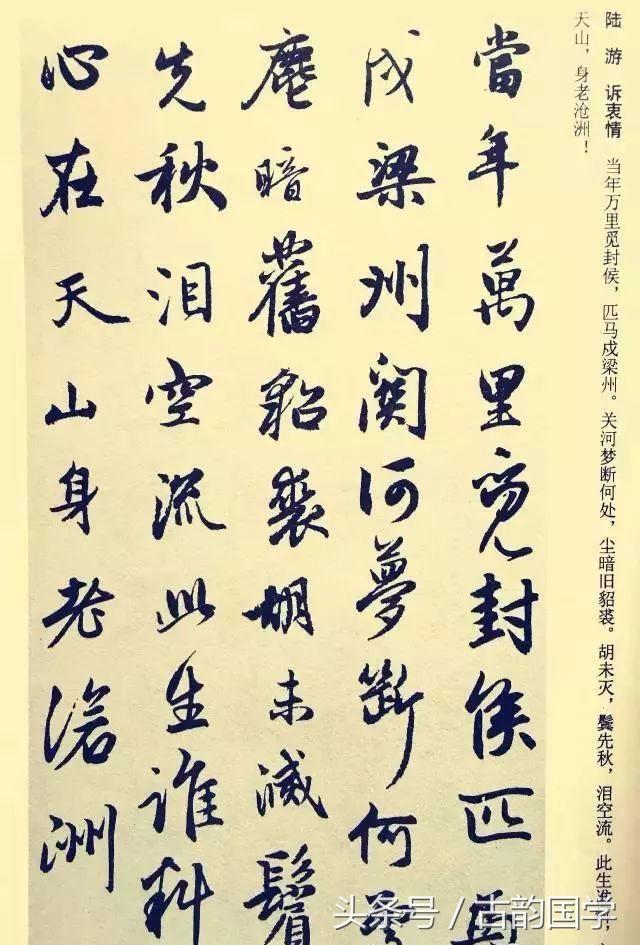 陆 游 诉衷情 当年万里觅封侯，匹马戍梁州。关河梦断何处，尘暗旧貂裘。胡未灭，鬓先秋，泪空流。此生谁
天山，身老沧洲！
當年萬里覓封侯匹馬
戍梁州關河夢斷何處
塵暗舊貂裘胡未滅鬢
先秋泪空流此生誰料
心在天山身老滄洲
头条号 / 古韵国学